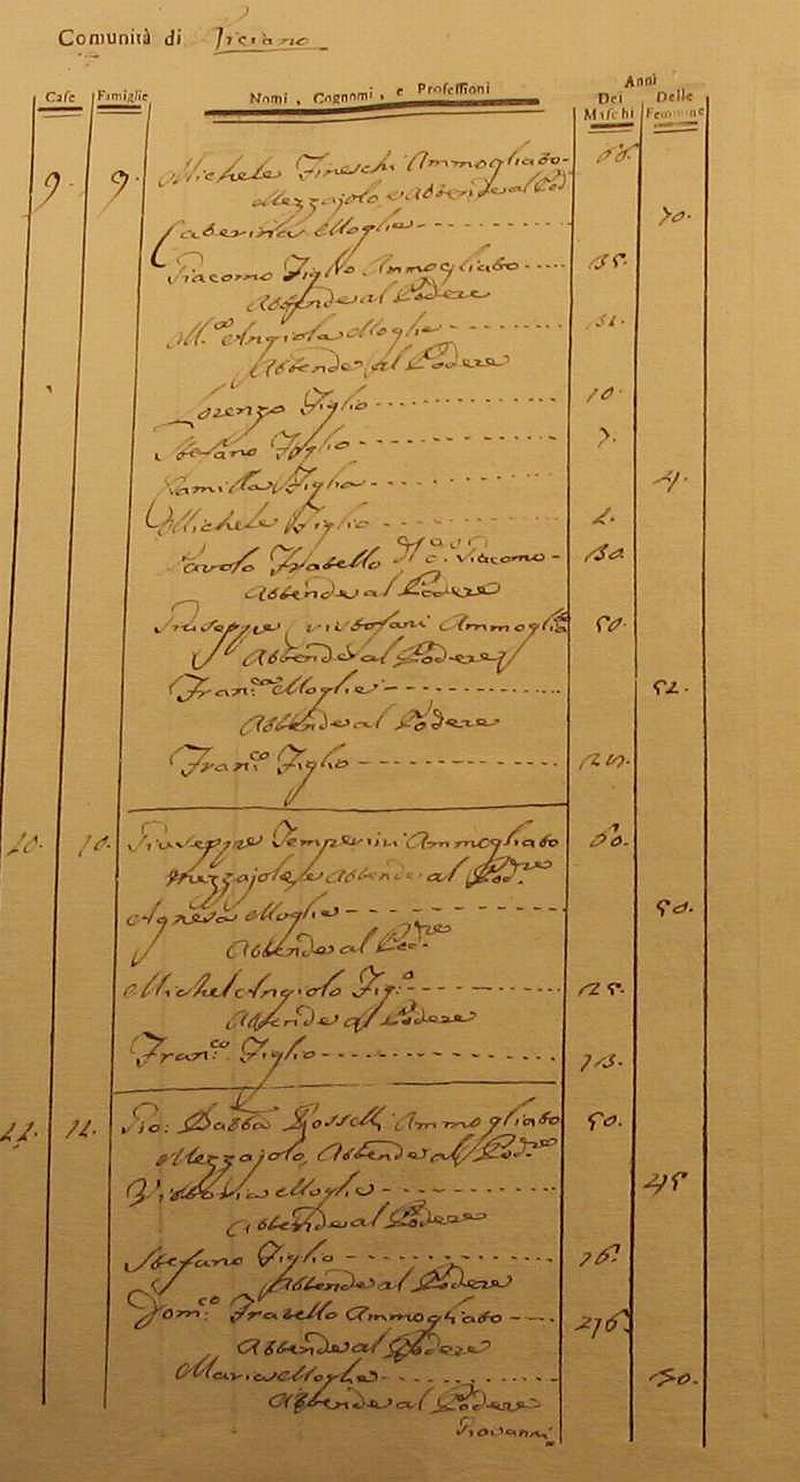 Comunità di
Case Famiglie Nomi, Cognomi, e Professioni Anni
Dei Maschi Delle Femmine
9. 9. Michele Ammogliato
Mezzajolo e Attende al
Caterina Moglie 70.
Giacomo Figlio Ammogliato 35.
Attende al Podere
M.a Angiola Moglie 31.
Attende al Podere
Lorenzo Figlio 10.
Stefano Figlio 7.
Camilla Figlia 4.
Michele Figlio 2.
Paolo Fratello Giacomo 30.
Attende al Podere
Giuseppe Ammogli 50.
Attende al Podere
Fran.ca Moglie 52.
Attende al Podere
Fran.co Figlio
10. 10. Giuseppe Ammogliato 60.
Mezzajolo, e Attende al Pod.re
Agnesa Moglie 50.
Attende al Pod.re
Michelangiolo Fig.o 25.
Attende al Podere
Fran.co Figlio 13.
11. 11. Gio: Batta Rosselli Ammogliato 50.
Mezzajolo, Attende al Pod.re
Vittoria Moglie 45
Attende al Podere
Stefano Figlio 16.
Attende al Podere
Dom.co Fratello Ammogliato 46.
Attende al Podere
Maria Moglie 30.
Attende al Podere
Giovanni